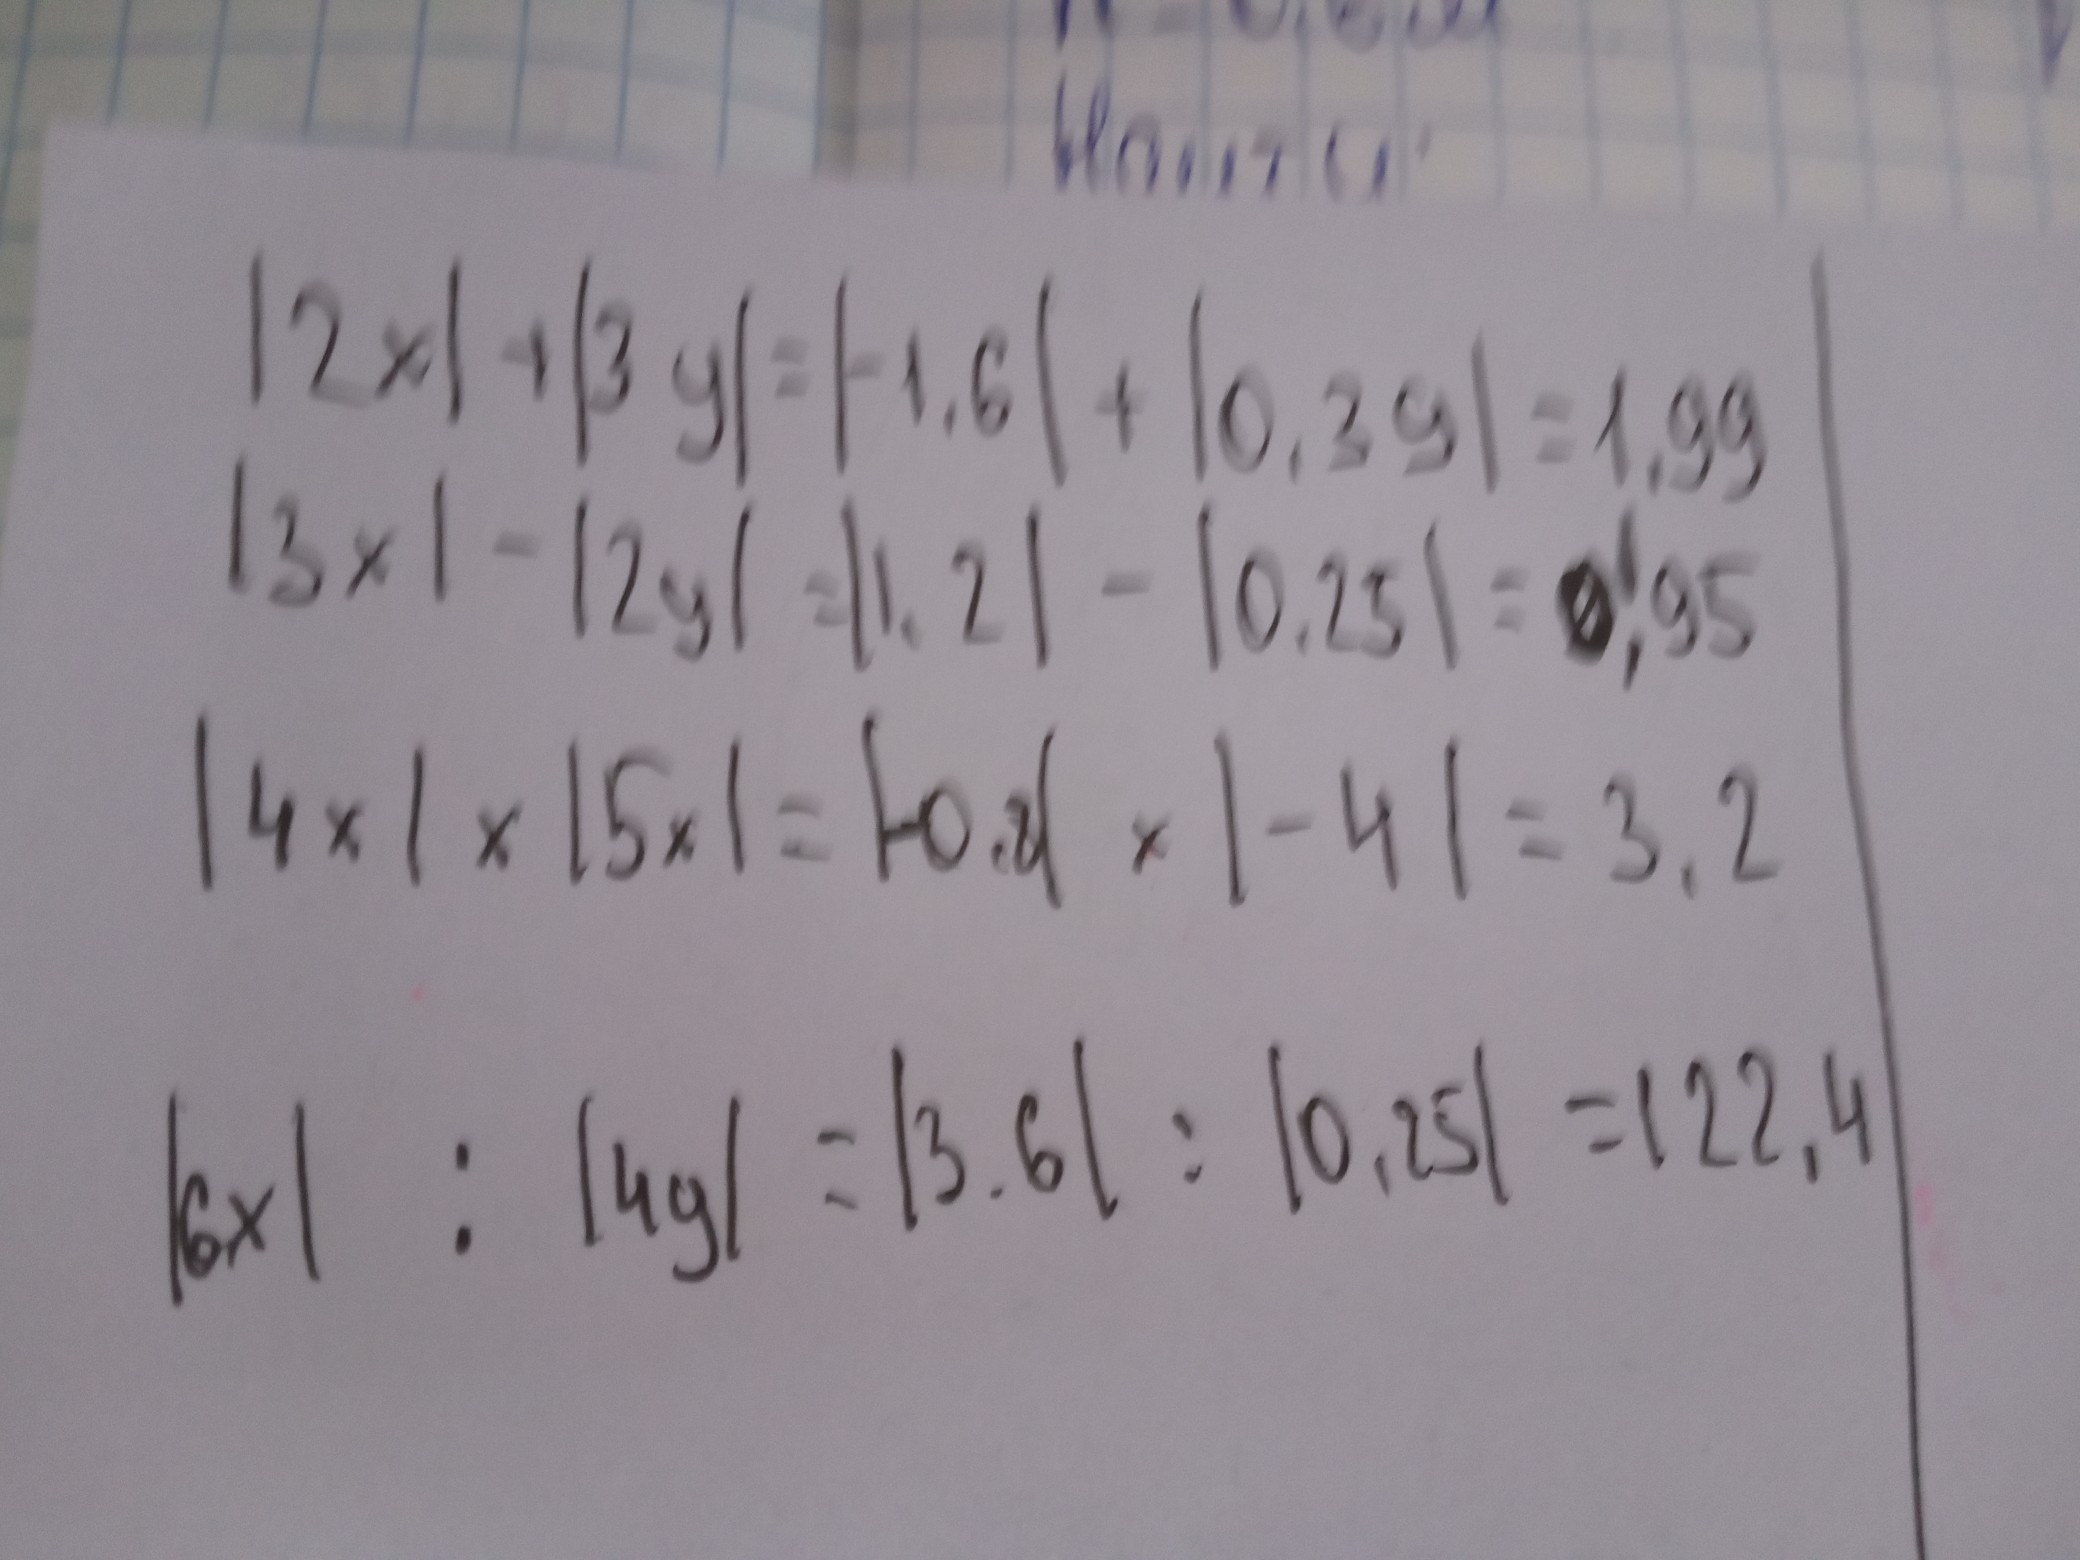 |2x| + |3y| = |-1.6| + |0.39| = 1.99
|3x| - |2y| = |1.2| - |0.25| = 0,95
|4x| x |5x| = |-0.8| x |-4| = 3.2
|6x| : |4y| = |3.6| : |0.25| = 122,4